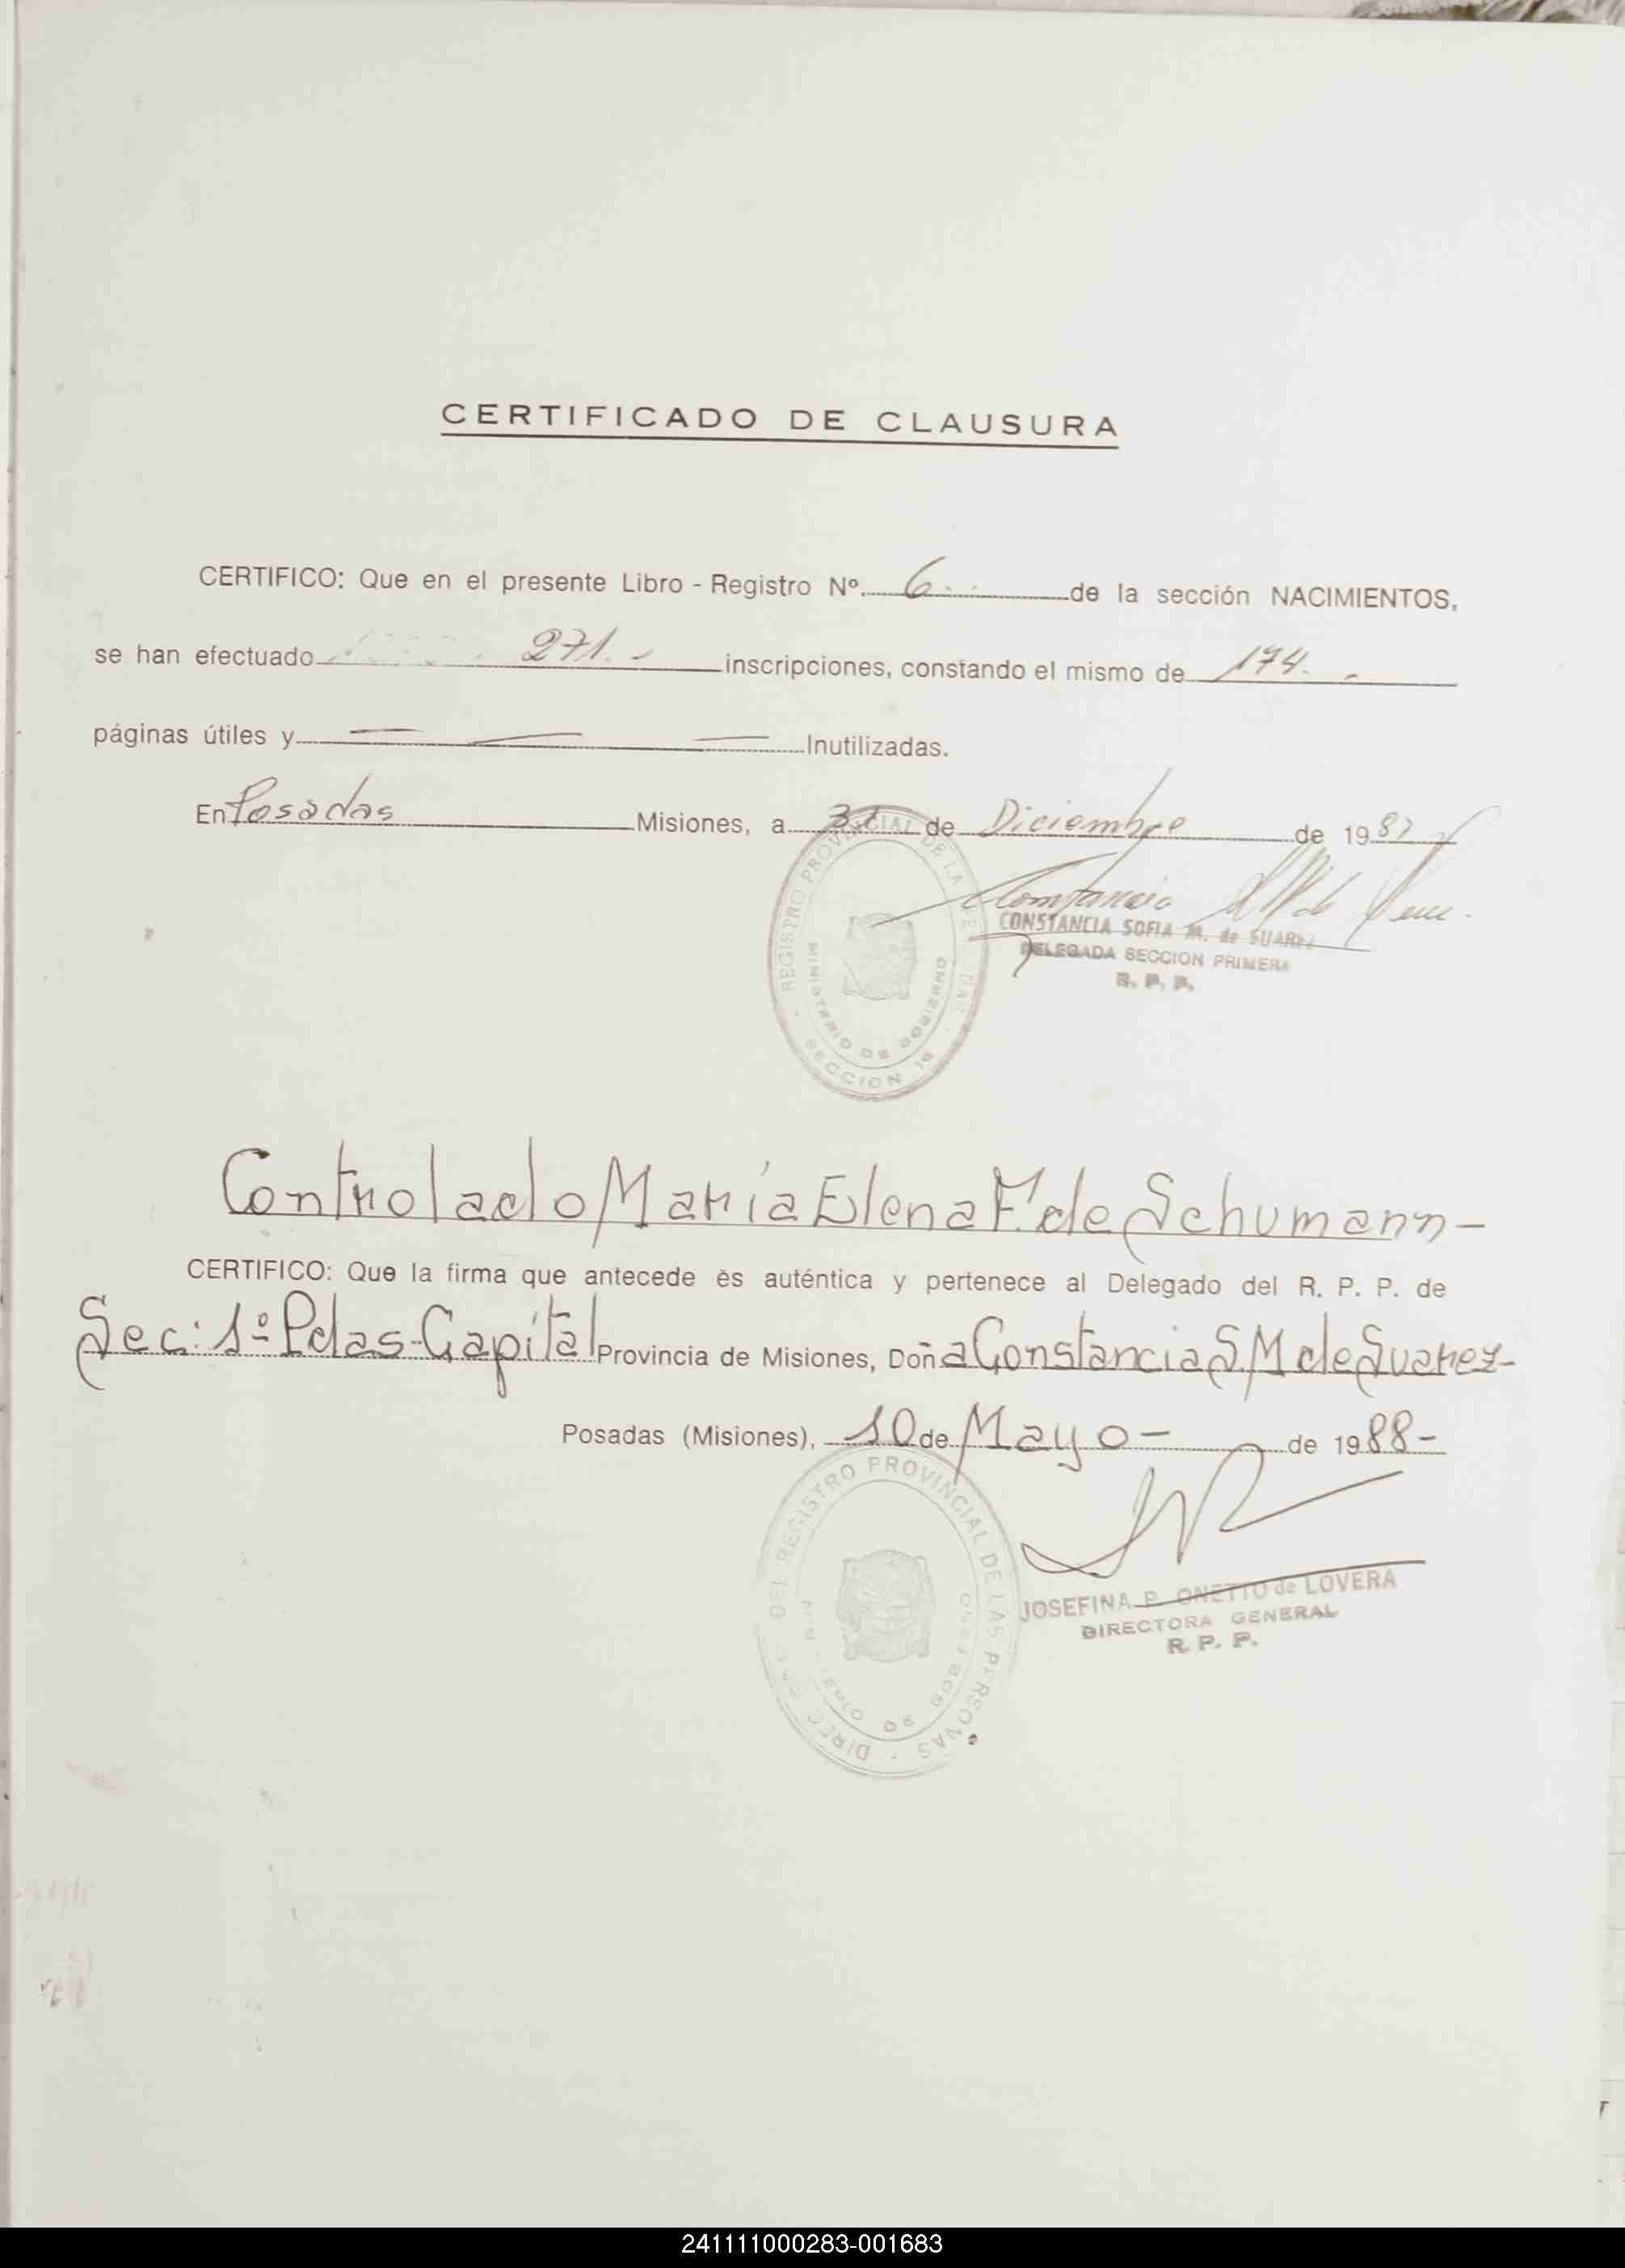 CERTIFICADO DE CLAUSURA
CERTIFICO: Que en el presente Libro - Registro Nº. 6 de la sección NACIMIENTOS,
se han efectuado 271.- inscripciones, constando el mismo de 174.-
páginas útiles y — — — Inutilizadas.
En Posadas Misiones, a 31 de Diciembre de 1987
CONSTANCIA SOFIA M. de SUAREZ
DELEGADA SECCION PRIMERA
R. P. P.
REGISTRO PROVINCIAL DE LAS PERSONAS - SECCION 1ª
MINISTERIO DE GOBIERNO
Controlado María Elena F. de Schumann-
CERTIFICO: Que la firma que antecede és auténtica y pertenece al Delegado del R. P. P. de
Sec: 1º Pdas-Capital Provincia de Misiones, Doña Constancia S. M de Suarez-
Posadas (Misiones), 10 de Mayo- de 1988-
JOSEFINA P. ONETTO de LOVERA
DIRECTORA GENERAL
R. P. P.
DIREC. GRAL. DEL REGISTRO PROVINCIAL DE LAS PERSONAS -
MINISTERIO DE GOBIERNO
241111000283-001683